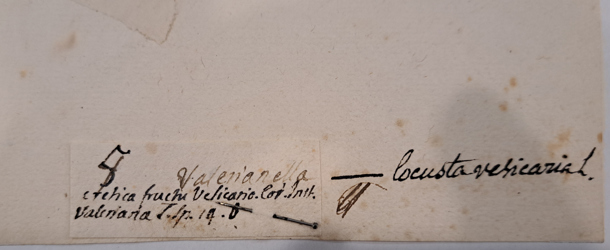 8 Valerianella — locusta vesicaria L.
cretica fructu Vesicario. Cor. Inst.
Valeriana L. sp. 14. 8